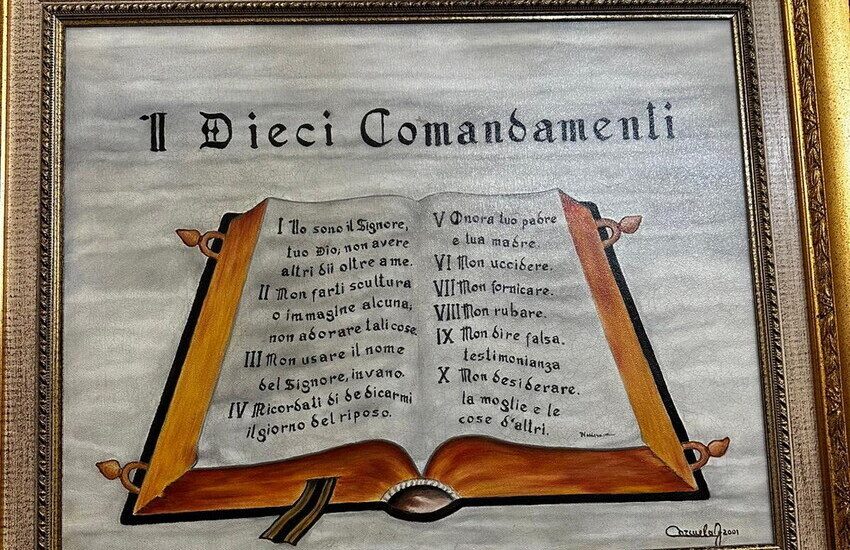 I Dieci Comandamenti
I Io sono il Signore,
tuo Dio, non avere
altri dii oltre a me.
II Non farti scultura
o immagine alcuna,
non adorare tali cose.
III Non usare il nome
del Signore, invano.
IV Ricordati di dedicarmi
il giorno del riposo.
V Onora tuo padre
e tua madre.
VI Non uccidere.
VII Non fornicare.
VIII Non rubare.
IX Non dire falsa.
testimonianza
X Non desiderare.
la moglie e le
cose d'altri.
2001